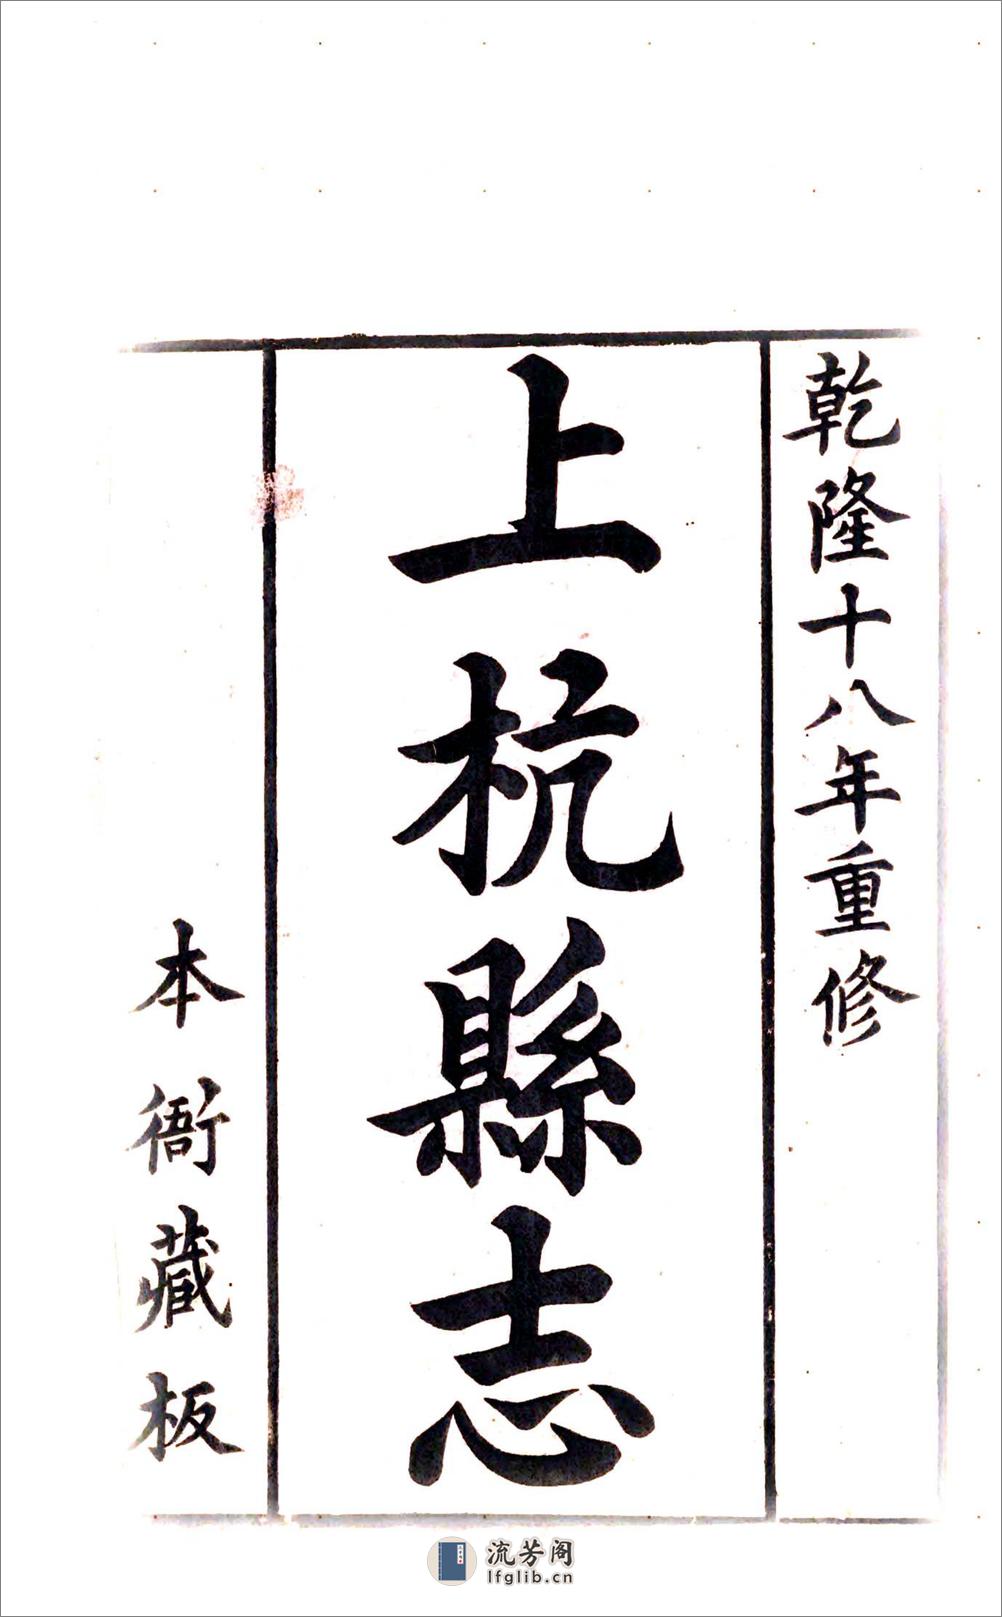 乾隆十八年重修
上杭縣志
本衙藏板
流芳阁
lfglib.cn